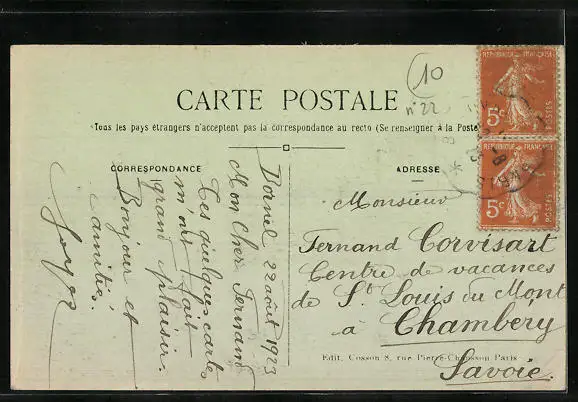 10
n° 22
CARTE POSTALE
Tous les pays étrangers n'acceptent pas la correspondance au recto (Se renseigner à la Poste)
CORRESPONDANCE
Bornel 22 août 1923
Mon cher Fernand
Tes quelques cartes
m'ont fait
grand plaisir.
Bonjour et
amitiés.
ADRESSE
Monsieur
Fernand Corvisart
Centre de vacances
de St Louis du Mont
à Chambery
Savoie.
Edit. Cosson 8, rue Pierre-Chausson Paris
REPUBLIQUE FRANÇAISE
5c
POSTES
REPUBLIQUE FRANÇAISE
5c
POSTES